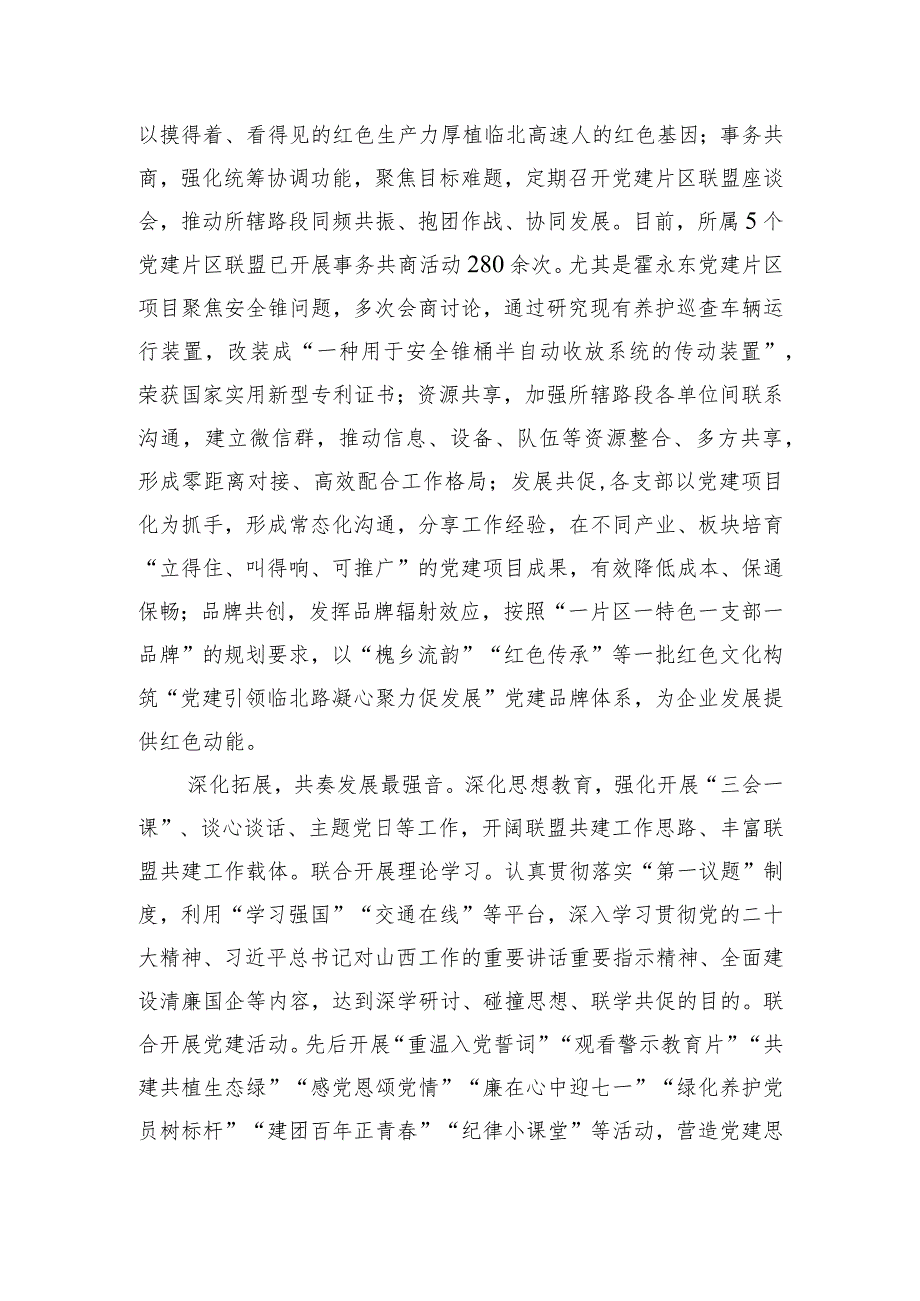 以摸得着、看得见的红色生产力厚植临北高速人的红色基因；事务共
商，强化统筹协调功能，聚焦目标难题，定期召开党建片区联盟座谈
会，推动所辖路段同频共振、抱团作战、协同发展。目前，所属5个
党建片区联盟已开展事务共商活动280余次。尤其是霍永东党建片区
项目聚焦安全锥问题，多次会商讨论，通过研究现有养护巡查车辆运
行装置，改装成“一种用于安全锥桶半自动收放系统的传动装置”，
荣获国家实用新型专利证书；资源共享，加强所辖路段各单位间联系
沟通，建立微信群，推动信息、设备、队伍等资源整合、多方共享，
形成零距离对接、高效配合工作格局；发展共促,各支部以党建项目
化为抓手，形成常态化沟通，分享工作经验，在不同产业、板块培育
“立得住、叫得响、可推广”的党建项目成果，有效降低成本、保通
保畅；品牌共创，发挥品牌辐射效应，按照“一片区一特色一支部一
品牌”的规划要求，以“槐乡流韵”“红色传承”等一批红色文化构
筑“党建引领临北路凝心聚力促发展”党建品牌体系，为企业发展提
供红色动能。
深化拓展，共奏发展最强音。深化思想教育，强化开展“三会一
课”、谈心谈话、主题党日等工作，开阔联盟共建工作思路、丰富联
盟共建工作载体。联合开展理论学习。认真贯彻落实“第一议题”制
度，利用“学习强国”“交通在线”等平台，深入学习贯彻党的二十
大精神、习近平总书记对山西工作的重要讲话重要指示精神、全面建
设清廉国企等内容，达到深学研讨、碰撞思想、联学共促的目的。联
合开展党建活动。先后开展“重温入党誓词”“观看警示教育片”“共
建共植生态绿”“感党恩颂党情”“廉在心中迎七一”“绿化养护党
员树标杆”“建团百年正青春”“纪律小课堂”等活动，营造党建思